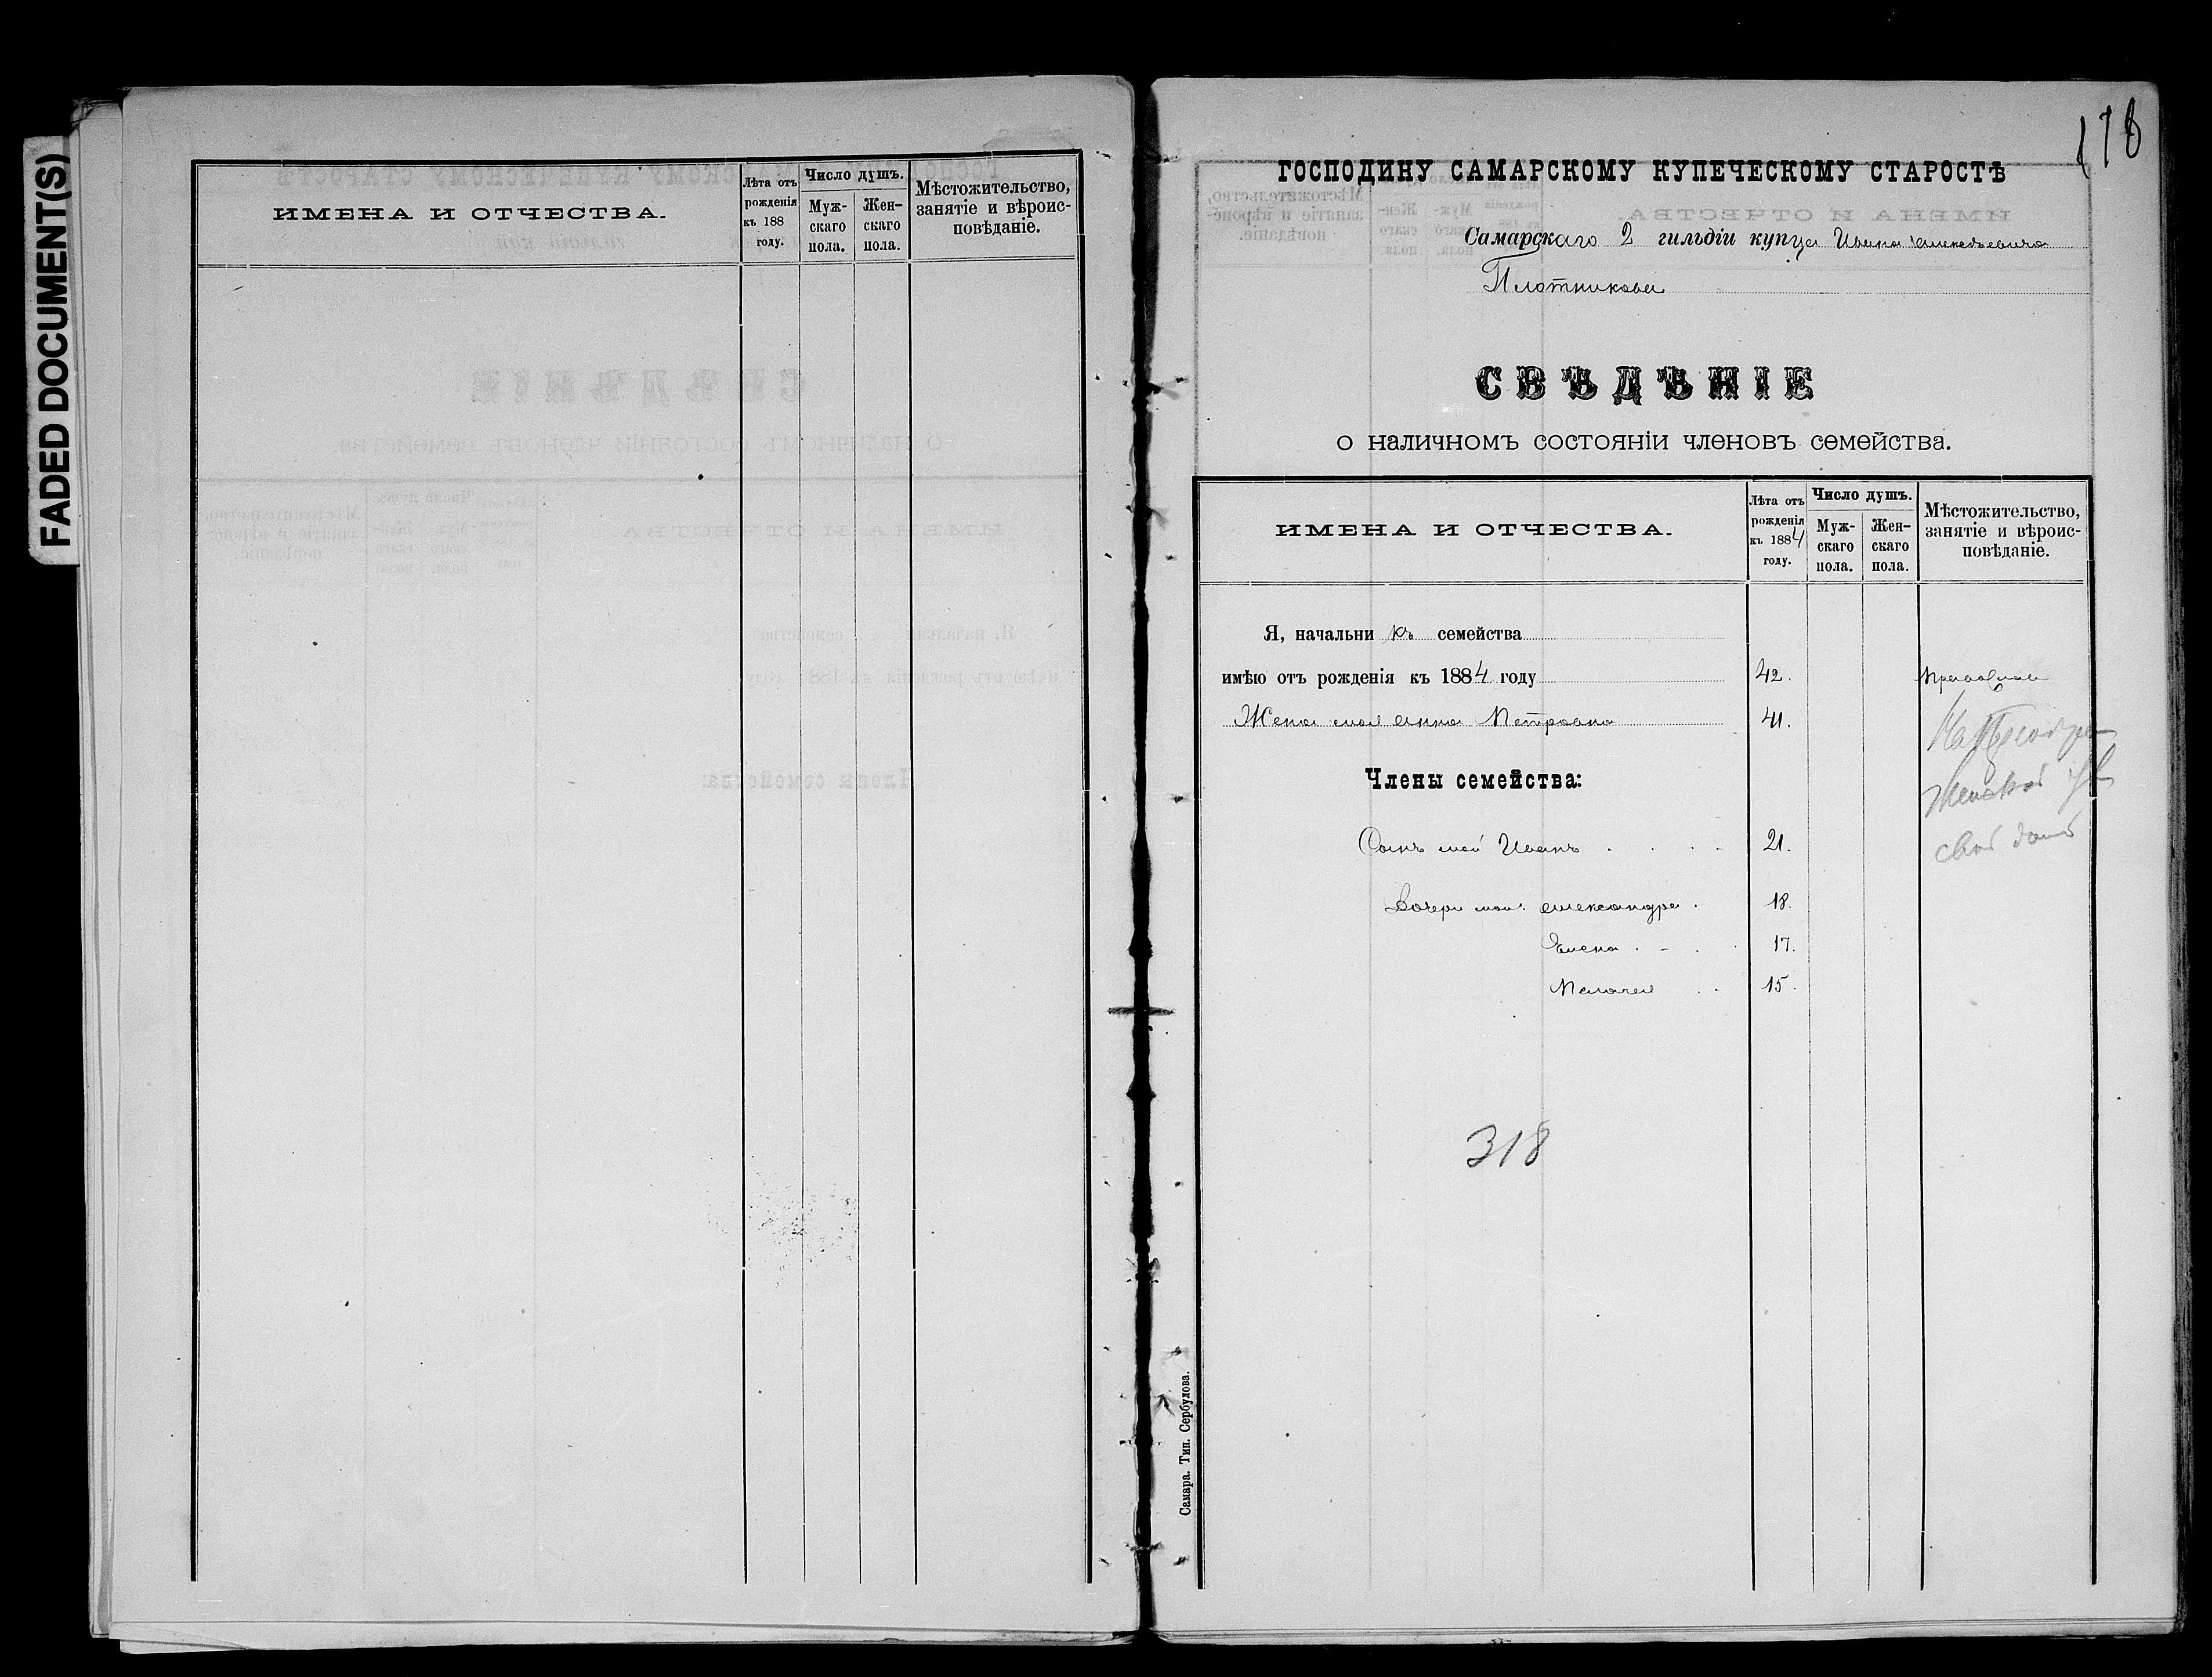 FADED DOCUMENT(S)
ИМЕНА И ОТЧЕСТВА.
Лѣта отъ рожденія къ 188 году.
Число душъ.
Мужскаго пола.
Женскаго пола.
Мѣстожительство, занятіе и вѣроисповѣданіе.
178
ГОСПОДИНУ САМАРСКОМУ КУПЕЧЕСКОМУ СТАРОСТѢ
Самарскаго 2 гильдіи купца Ивана Алексѣевича
Плотникова
СВѢДѢНІЕ
о наличномъ состояніи членовъ семейства.
ИМЕНА И ОТЧЕСТВА.
Лѣта отъ рожденія къ 1884 году.
Число душъ.
Мужскаго пола.
Женскаго пола.
Мѣстожительство, занятіе и вѣроисповѣданіе.
Я, начальникъ семейства
имѣю отъ рожденія къ 1884 году 42.
Жена моя Анна Петровна 41.
Члены семейства:
Сынъ мой Иванъ 21.
Дочери мои: Александра 18.
Елена 17.
Пелагея 15.
свой домъ
318
Самара. Тип. Сербулова.